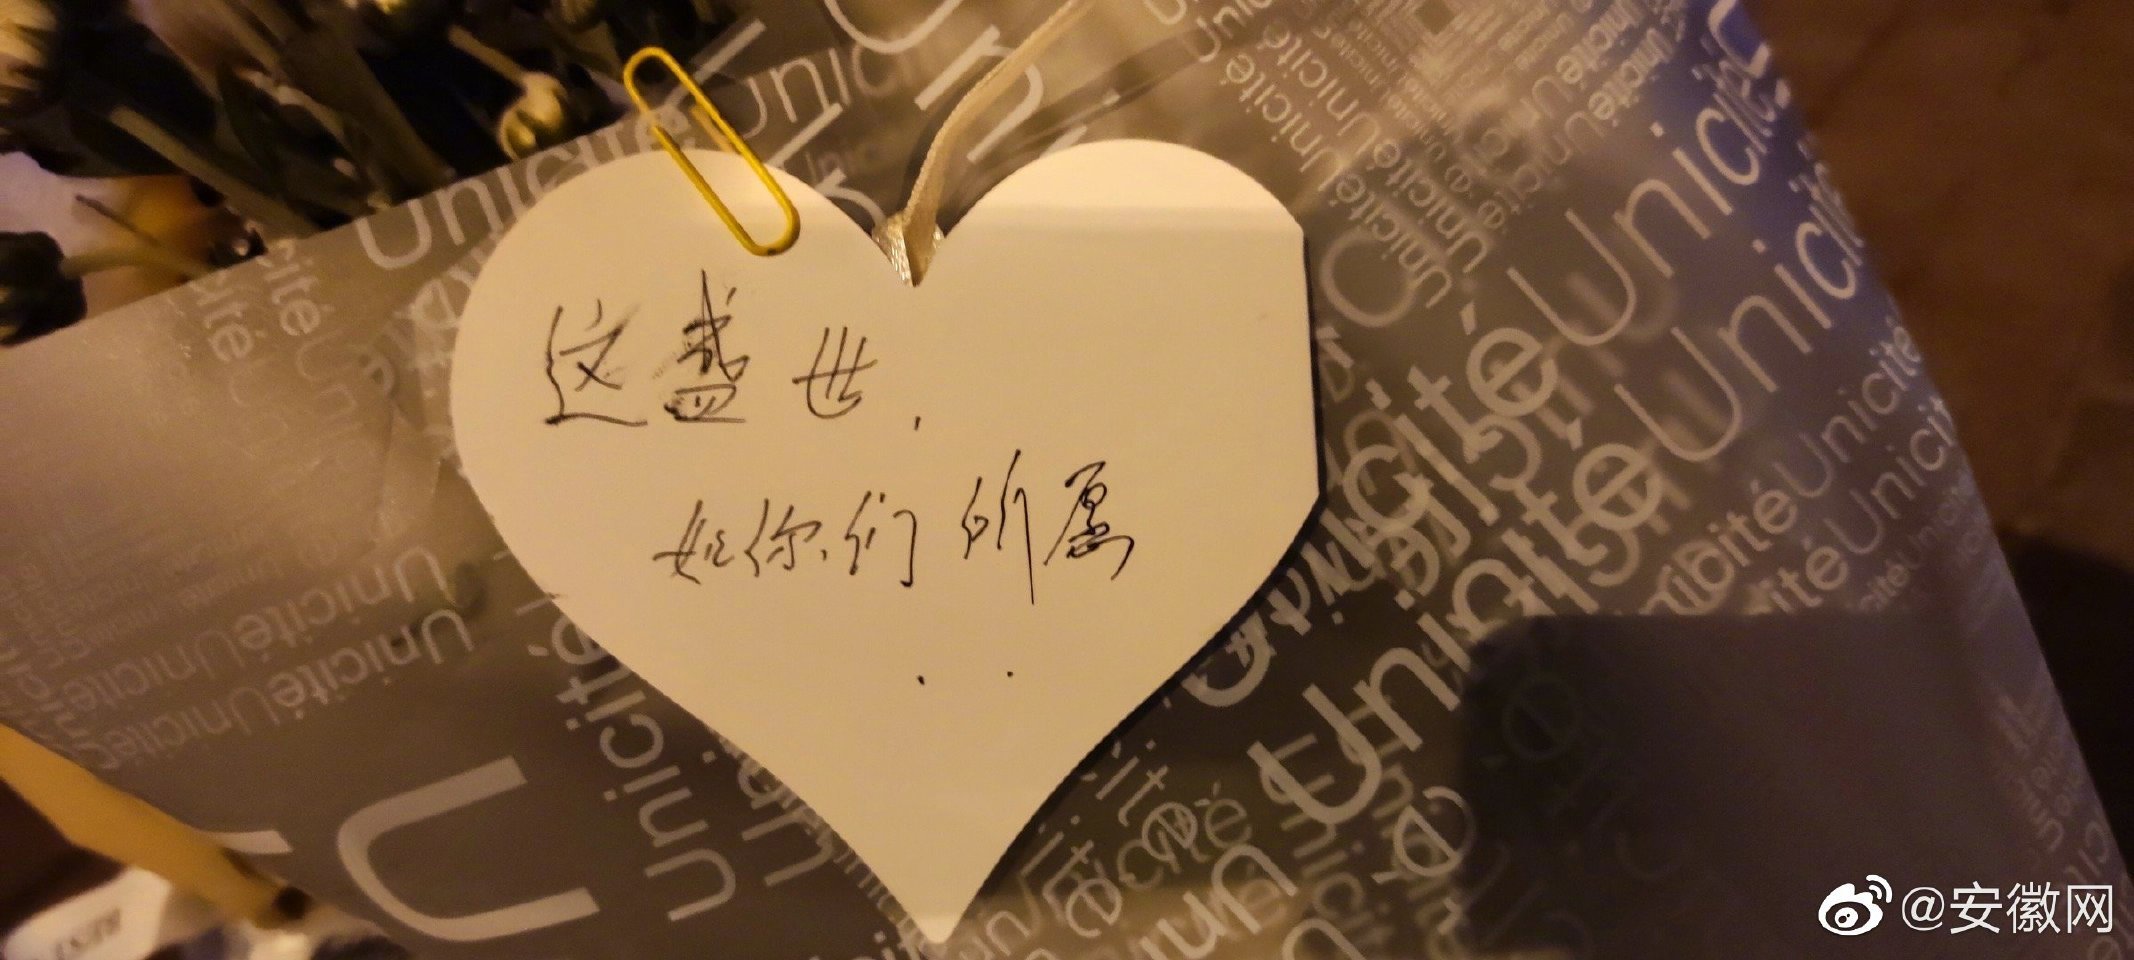 这盛世，
如你们所愿
..
Unicité
@安徽网